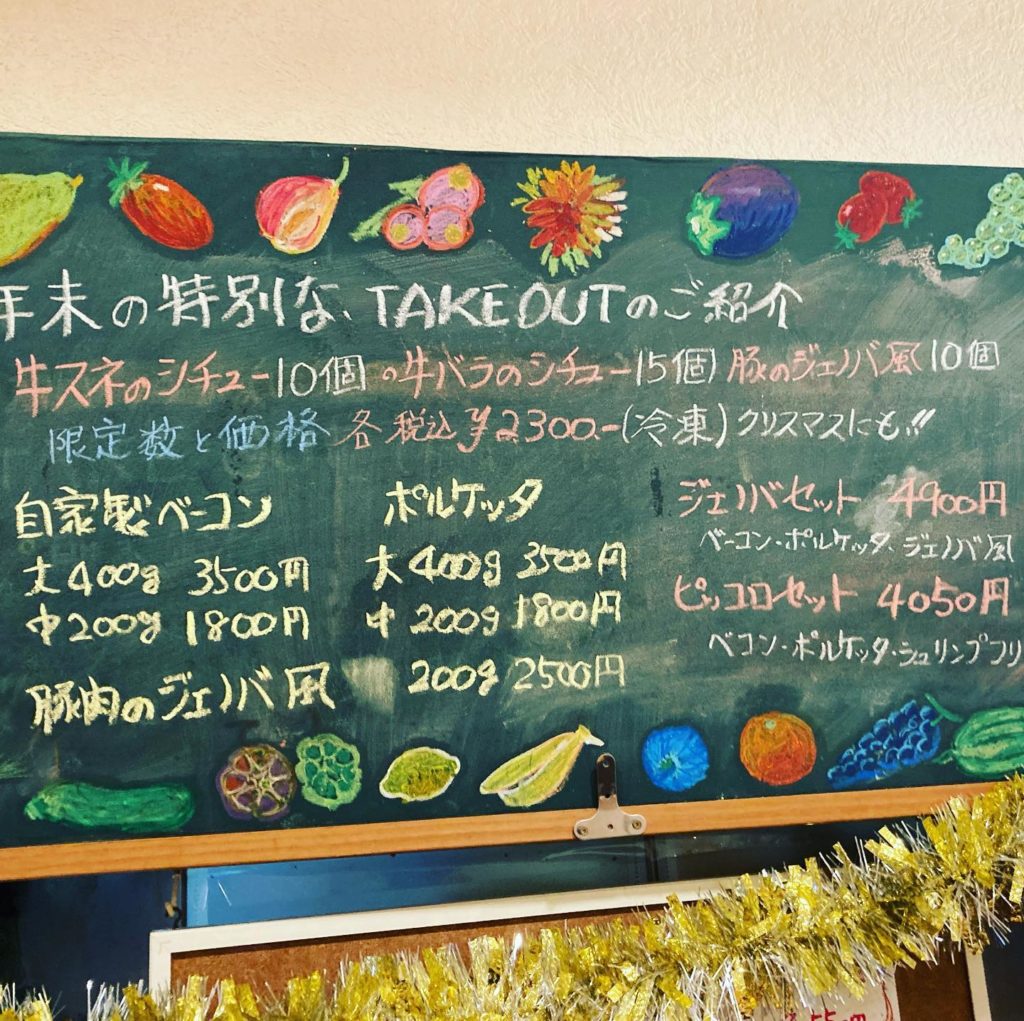 年末の特別な、TAKEOUTのご紹介
牛スネのシチュー10個 の牛バラのシチュー15個 豚のジェノバ風10個
限定数と価格 各税込¥2300.-(冷凍)クリスマスにも!!
自家製ベーコン
大400g 3500円
中200g 1800円
ポルケッタ
大400g 3500円
中200g 1800円
豚肉のジェノバ風 200g 2500円
ジェノバセット 4900円
ベーコン・ポルケッタ、ジェノバ風
ピッコロセット 4050円
ベコン・ポルケッタ・シュリンプフリ